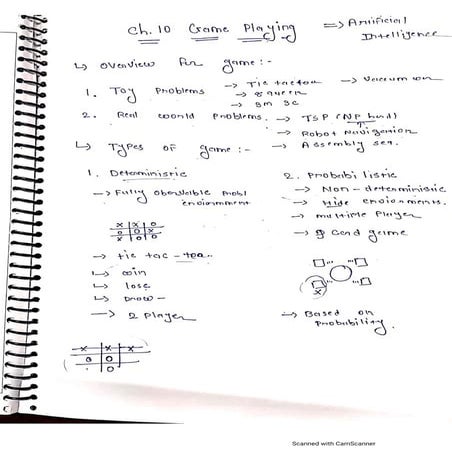 Ch. 10 Game Playing => Artificial Intelligence
↳ overview for game :-
1. Toy Problems → Tic tac toe → Vaccum wor
→ 8 queen
→ 8m 3c
2. Real world Problems. → TSP (NP hard)
→ Robot Navigation
→ Assembly seq.
↳ Types of game :-
1. Deterministic
→ Fully observable
environment
x x o
o o x
→ tic tac - toe..
↳ win
↳ lose
↳ Draw -
→ 2 Player
x x x
o o
o
2. Probabilistic
→ Non - deterministic
→ Hide environments.
→ multiple Player
→ Card game
x
→ Based on
Probability.
Scanned with CamScanner